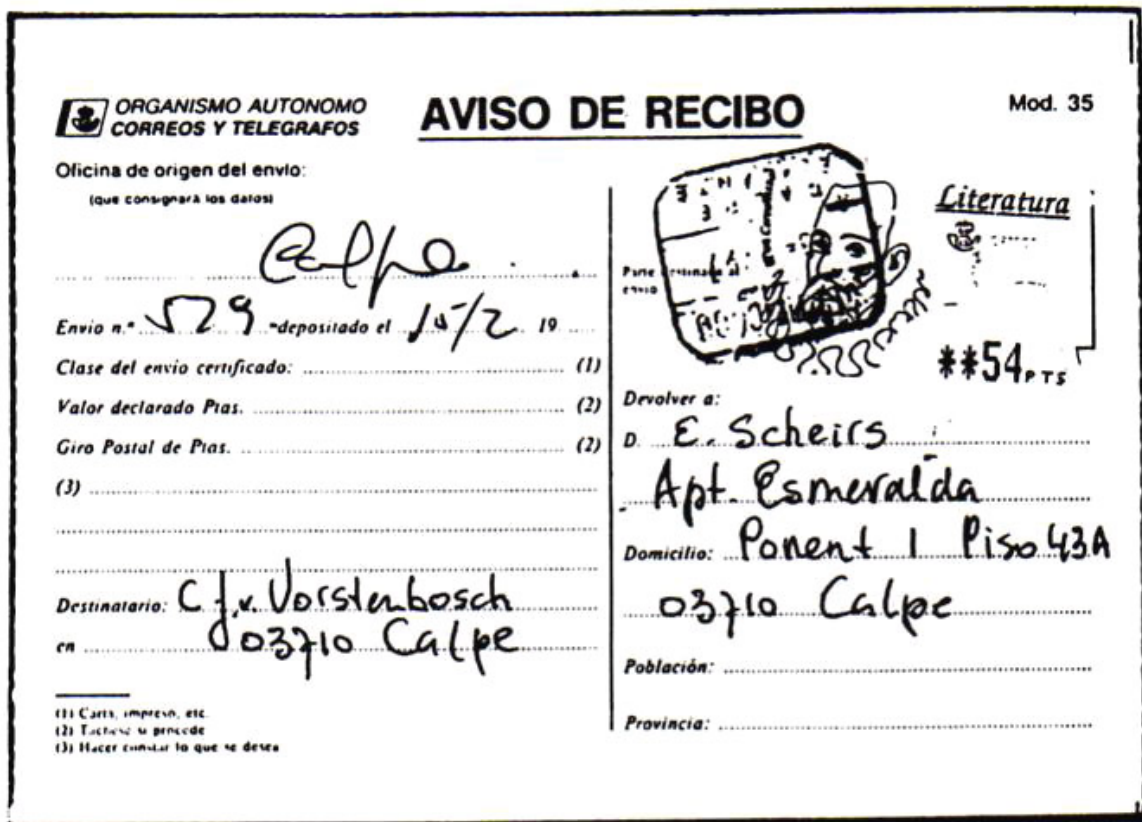 ORGANISMO AUTONOMO
CORREOS Y TELEGRAFOS
AVISO DE RECIBO
Mod. 35
Oficina de origen del envío:
(que consignará los datos)
Calpe
Envío n.º 529 depositado el 15/2 19
Clase del envío certificado: (1)
Valor declarado Ptas. (2)
Giro Postal de Ptas. (2)
(3)
Destinatario: C.J.v. Vorstenbosch
en 03710 Calpe
(1) Carta, impreso, etc.
(2) Táchese si procede
(3) Hacer constar lo que se desea
Literatura
**54 PTS
Devolver a:
D. E. Scheirs
Apt. Esmeralda
Domicilio: Ponent 1 Piso 43A
03710 Calpe
Población:
Provincia: